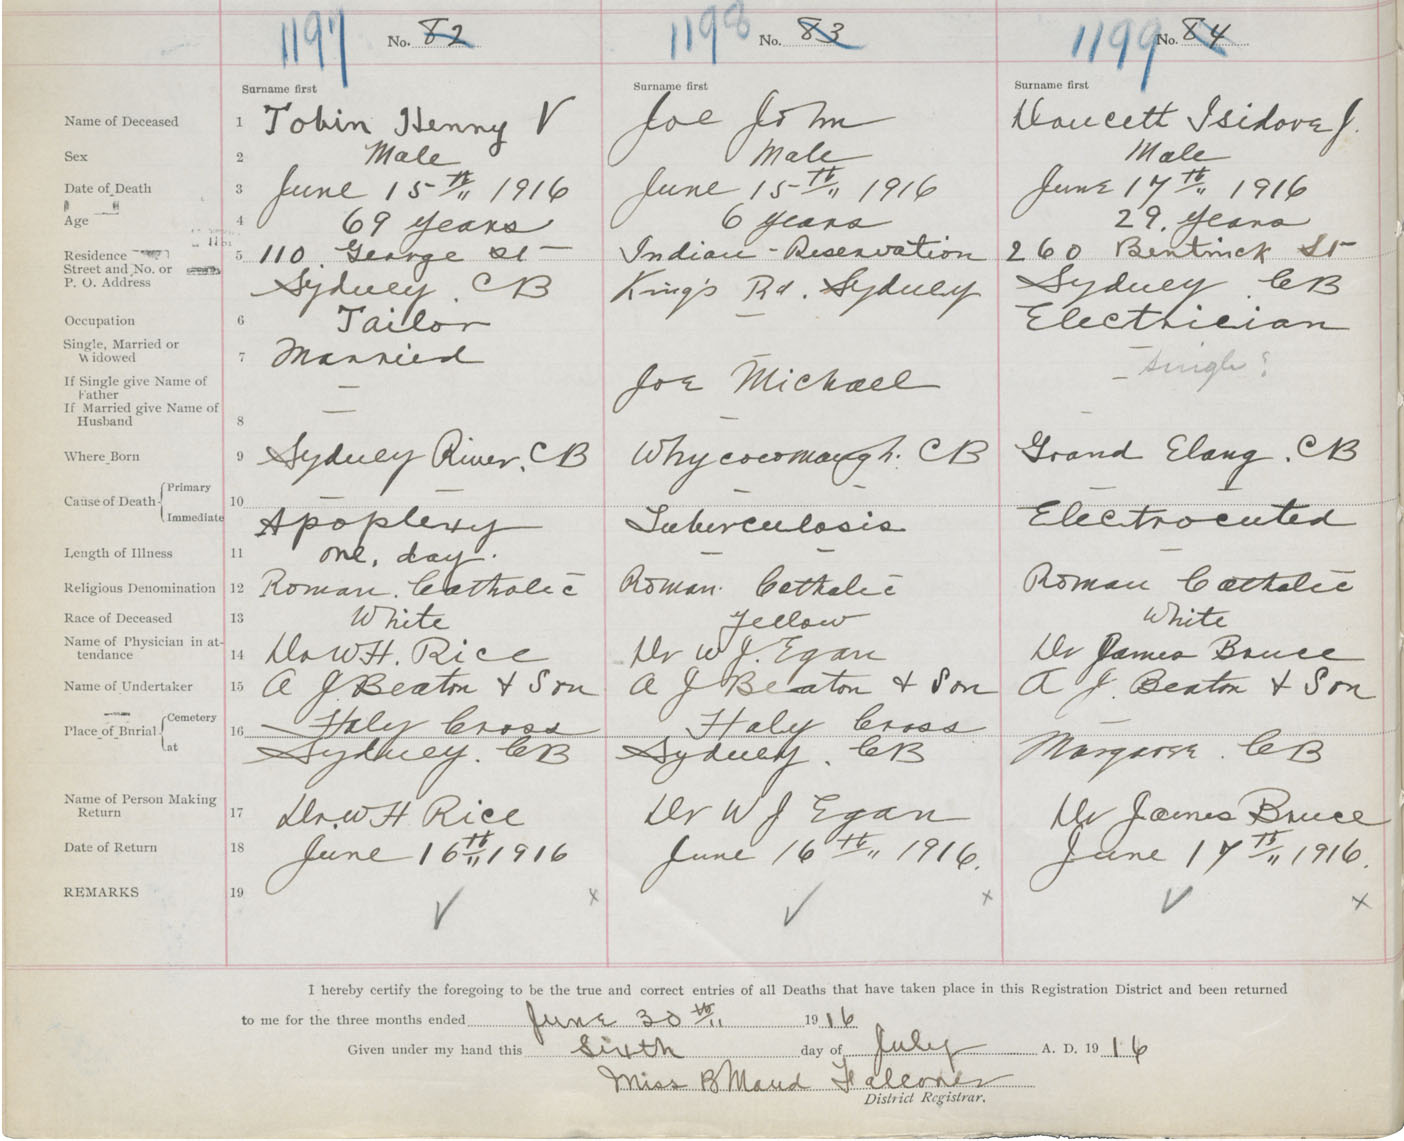 1197 No. 82 1198 No. 83 1199 No. 84
Surname first Surname first Surname first
Name of Deceased 1 Tobin Henry V Joe John Doucett Isidore J.
Sex 2 Male Male Male
Date of Death 3 June 15th 1916 June 15th 1916 June 17th 1916
Age 4 69 years 6 years 29. years
Residence 5 110 George St Indian-Reservation 260 Bentinck St
Street and No. or
P. O. Address Sydney. CB King's Rd. Sydney Sydney CB
Occupation 6 Tailor — Electrician
Single, Married or
Widowed 7 Married — — Single?
If Single give Name of
Father — Joe Michael
If Married give Name of
Husband 8 — — —
Where Born 9 Sydney River. CB Whycocomaugh. CB Grand Elang. CB
Cause of Death Primary 10 — — — — — —
Immediate Apoplexy Tuberculosis Electrocuted
Length of Illness 11 one, day. — — —
Religious Denomination 12 Roman. Catholic Roman. Catholic Roman Catholic
Race of Deceased 13 White Yellow White
Name of Physician in at-
tendance 14 Dr. W H. Rice Dr W J. Egan Dr James Bruce
Name of Undertaker 15 A J Beaton & Son A J Beaton & Son A J. Beaton & Son
Place of Burial Cemetery 16 Holy Cross Holy Cross —
at Sydney. CB Sydney. CB Margaree. CB
Name of Person Making
Return 17 Dr. W H Rice Dr W J Egan Dr James Bruce
Date of Return 18 June 16th 1916 June 16th 1916. June 17th 1916.
REMARKS 19 ✓ x ✓ x ✓ x
I hereby certify the foregoing to be the true and correct entries of all Deaths that have taken place in this Registration District and been returned
to me for the three months ended June 30th 1916
Given under my hand this Sixth day of July A. D. 1916
Miss B Maud Falconer
District Registrar.